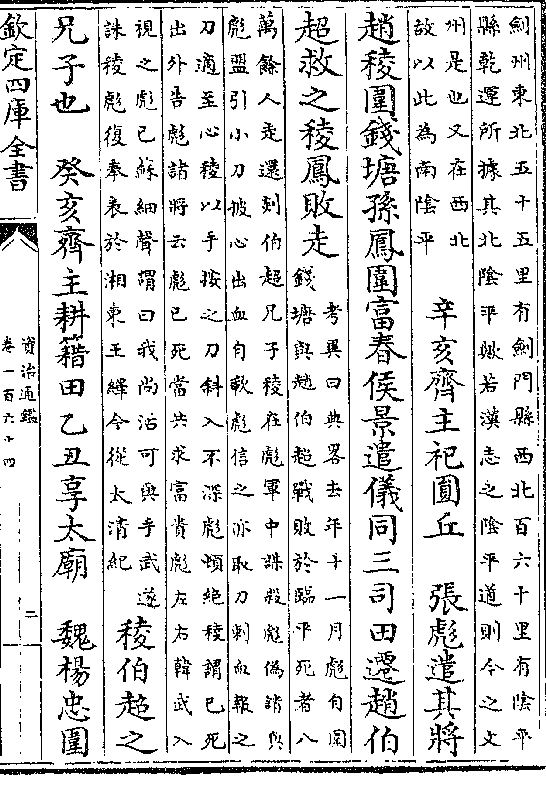 劍州東北五十五里有劍門縣西北百六十里有陰平
縣乾運所據其北陰平歟若漢志之陰平道則今之文
州是也又在西北
故以此為南陰平
辛亥齊主祀圜丘　張彪遣其將
趙稜圍錢塘孫鳳圍富春侯景遣儀同三司田遷趙伯
超救之稜鳳敗走
考異曰典略去年十一月彪自圍
錢塘與趙伯超戰敗於臨平死者八
萬餘人走還剡伯超兄子稜在彪軍中謀殺彪偽請與
彪盟引小刀披心出血自歃彪信之亦取刀刺血報之
刀適至心稜以手按之刀斜入不深彪頓絶稜謂已死
出外告彪諸將云彪已死當共求富貴彪左右韓武入
視之彪已蘇細聲謂曰我尚活可與手武遂
誅稜彪復奉表於湘東王繹今從太清紀
稜伯超之
兄子也　癸亥齊主耕籍田乙丑享太廟　魏楊忠圍
欽定四庫全書
資治通鑑
卷一百六十四
二